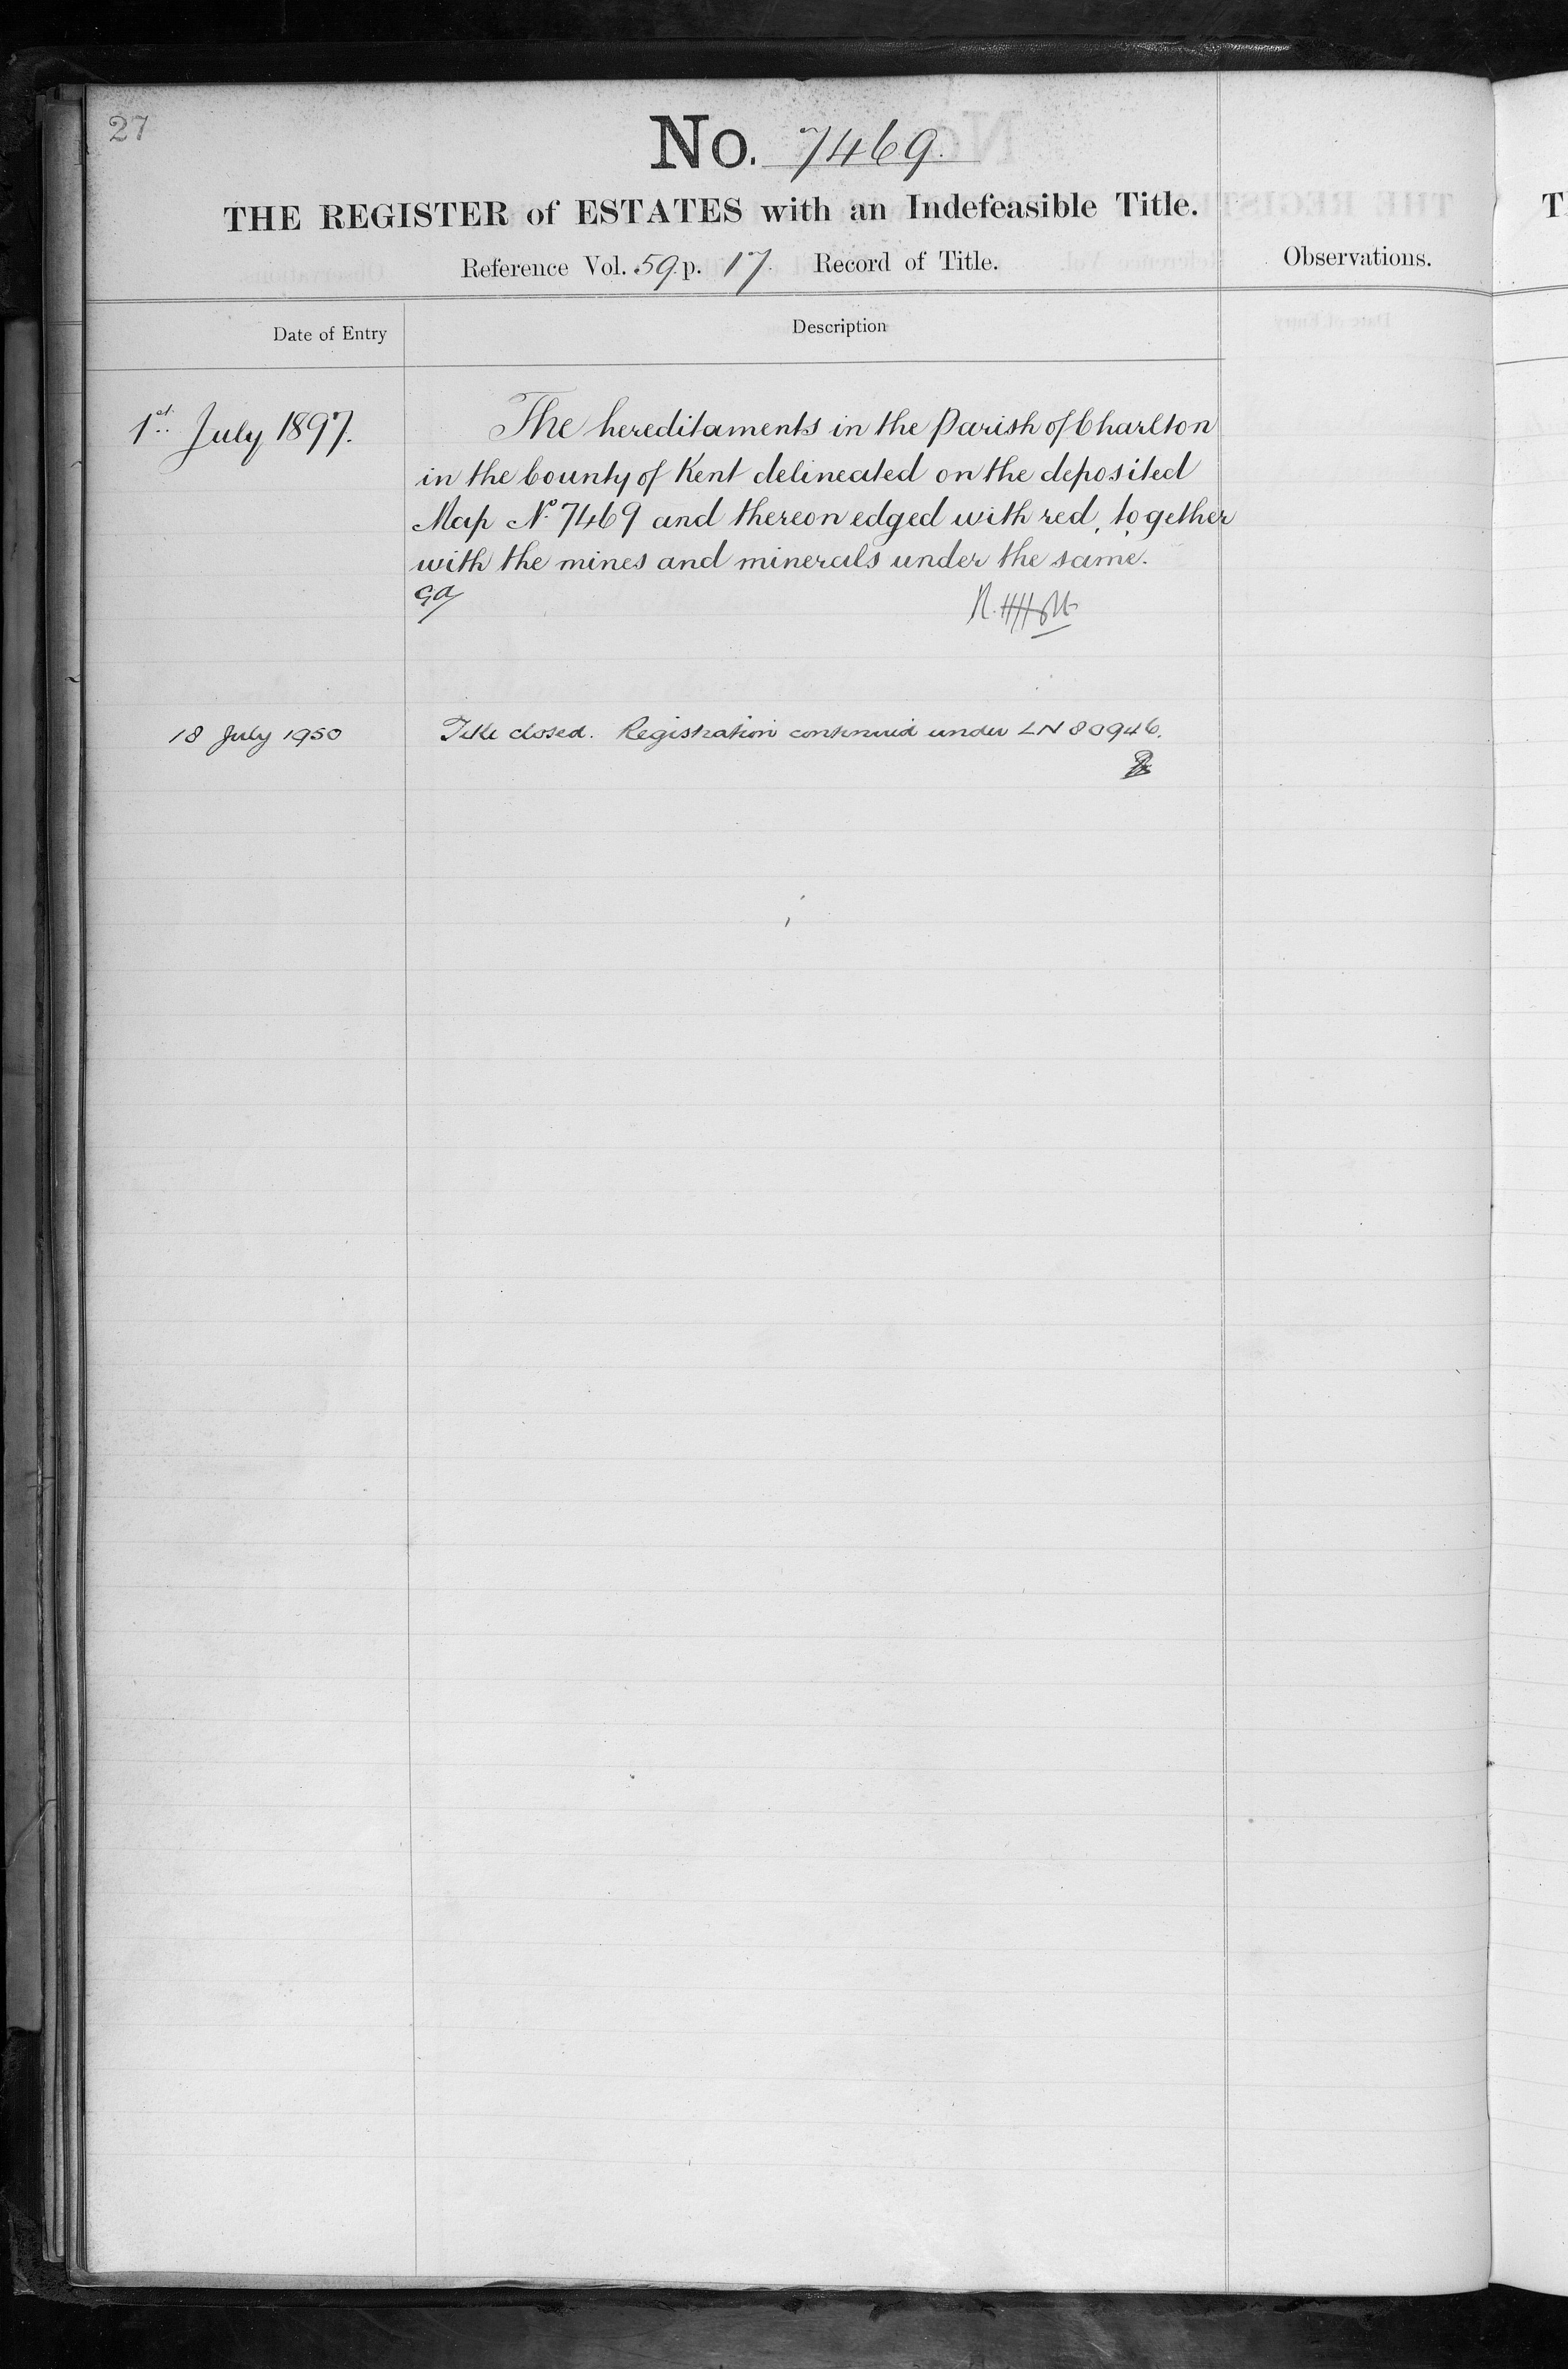 27
No. 7469.
THE REGISTER of ESTATES with an Indefeasible Title.
Reference Vol. 59. p. 17. Record of Title.
Observations.
Date of Entry
Description
1st July 1897.
The hereditaments in the Parish of Charlton
in the County of Kent delineated on the deposited
Map No. 7469 and thereon edged with red, together
with the mines and minerals under the same.
18 July 1950
Title closed. Registration continued under LN 80946.